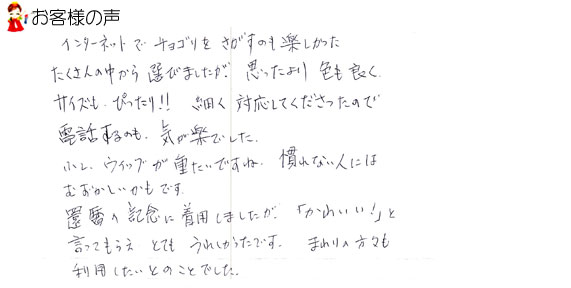 お客様の声
インターネットで チョゴリを さがすのも楽しかった
たくさんの中から 選びましたが 思ったより 色も良く、
サイズも、ぴったり!! 細く 対応してくださったので
電話するのも、気が楽でした。
少し、ウイッグが重たいですね、慣れない人には
むずかしいかもです。
還暦の記念に着用しましたが、「かわいい!」と
言ってもらえ とても うれしかったです。 まわりの方々も
利用したいとのことでした。